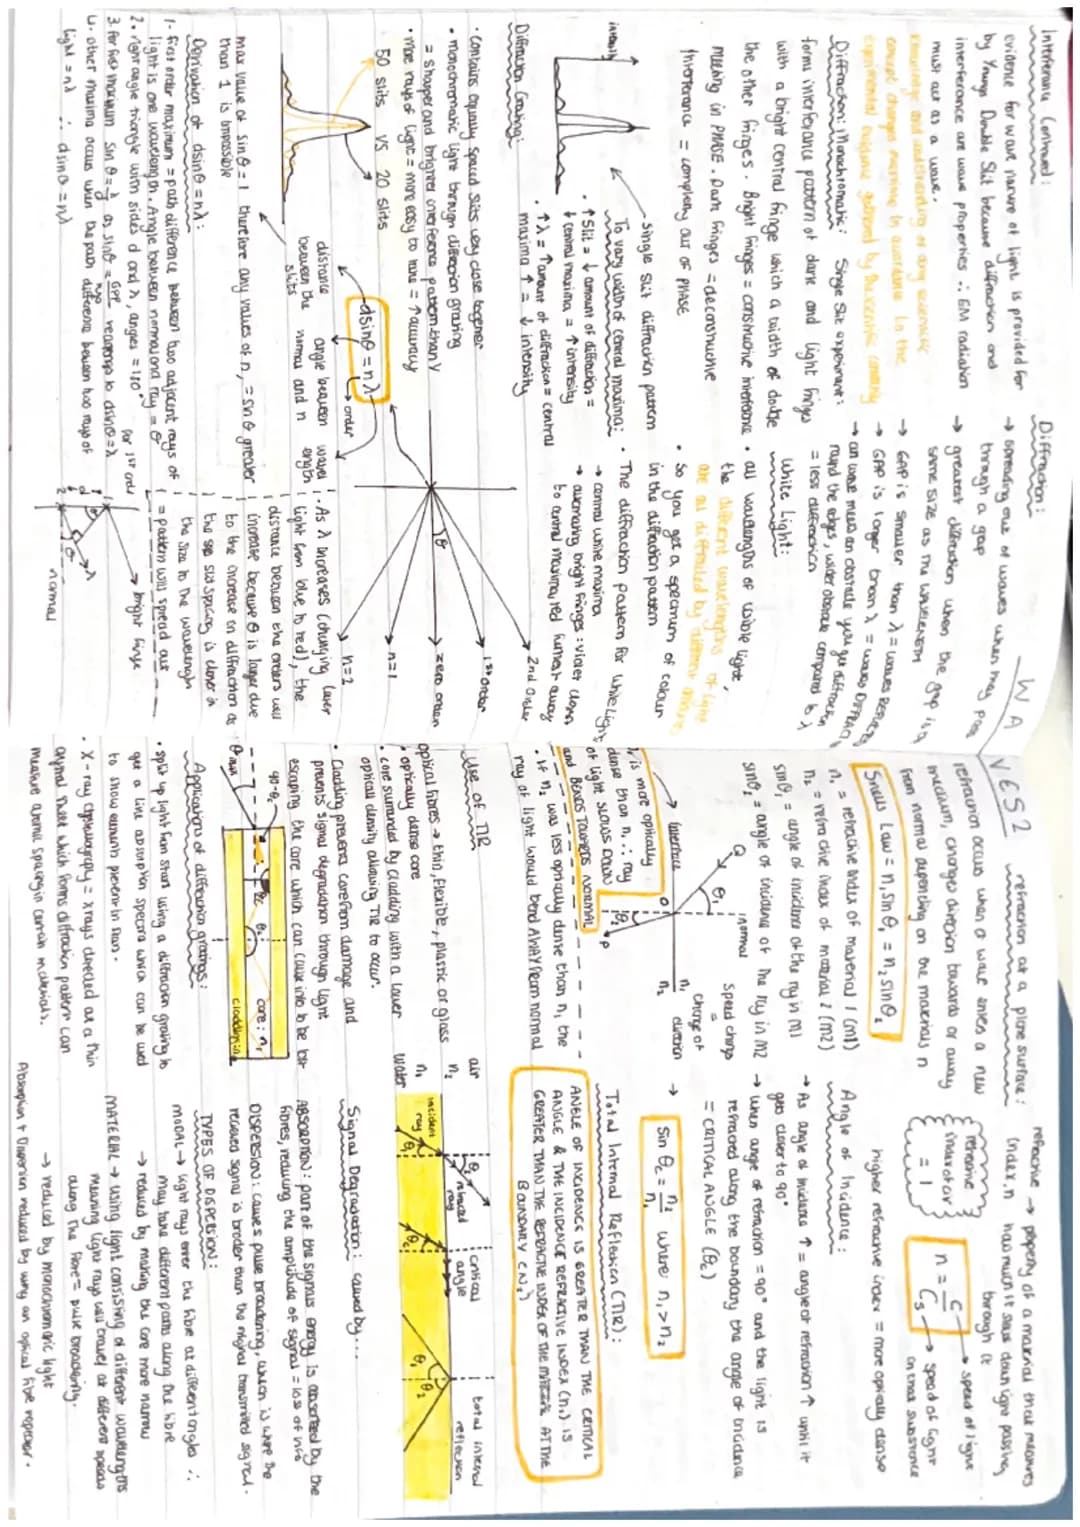 WAVES 2
Interference Continued:
evidence for wave nature of light is provided for
by Youngs Double Slit because diffraction and
interference are wave properties ∴ EM radiation
must act as a wave.
Knowledge and understanding of any scientific
concept changes overtime in accordance to the
experimental evidence gathered by the scientific community
Diffraction: Monochromatic: Single Slit experiment:
forms interference pattern of dark and light fringes
with a bright central fringe which a width of double
the other fringes. Bright fringes = constructive interference
meeting in PHASE. Dark fringes = deconstructive
inverence = completely out of PHASE
intensity
single slit diffraction pattern
To vary width of central maxima:
• ↑ Slit = ↓ amount of diffraction =
↓ central maxima = ↑ intensity
• ↑ λ = ↑ amount of diffraction = central
maxima ↑ = ↓ intensity
Diffraction Grating:
• Contains equally spaced slits very close together
• monochromatic light through diffraction grating
= sharper and brighter interference pattern than Y
• more rays of light = more easy to take = ↑ accuracy
50 slits VS 20 slits
dsinθ = nλ
order
distance between the slits
angle between normal and n
wavelength
max value of sinθ = 1 therefore any values of n, = sin θ greater
than 1 is impossible
Derivation of dsinθ = nλ:
1- first order maximum = path difference between two adjacent rays of
light is one wavelength. Angle between normal and ray = θ
2. right angle triangle with sides d and λ,
for 1st order
3. for first maximum sin θ = λ/d as sinθ = opp/hyp rearrange to dsinθ = λ
4. other maxima occurs when the path difference between two rays of
light = nλ ∴ dsinθ = nλ
Diffraction:
→ spreading out of waves when they pass
through a gap
→ greatest diffraction when the gap is a
same size as the WAVELENGTH
→ GAP is smaller than λ = waves REFLECT
→ GAP is longer than λ = waves DIFFRACT
→ an wave meets an obstacle you get diffraction
round the edges, wider obstacle compared to λ
= less diffraction
White Light:
• all wavelengths of visible light,
the different wavelengths of light
are all diffracted by different amounts
• So you get a spectrum of colour
in the diffraction pattern
• The diffraction pattern for white light
→ central white maxima
→ alternating bright fringes: violet closer
to central maxima, red furthest away
2nd Order
1st order
zero order
n=1
n=2
θ
• As λ increases (changing laser
light from blue to red), the
distance between the orders will
increase because θ is larger due
to the increase in diffraction as
the slit spacing is closer in
the size to the wavelength
= pattern will spread out
bright fringe
normal
refraction at a plane surface:
refraction occurs when a wave enters a new
medium, changes direction towards or away
from normal depending on the materials n
Snells Law = n₁ sin θ₁ = n₂ sin θ₂
n₁ = refractive index of material 1 (m1)
n₂ = refractive index of material 2 (m2)
sinθ₁ = angle of incidence of the ray in m1
sinθ₂ = angle of incidence of the ray in m2
interface
normal
n₁
n₂
speed change
=
change of
direction
n₂ is more optically
dense than n₁ ∴ ray
of light SLOWS DOWN
and BENDS TOWARDS NORMAL
• If n₂ was less optically dense than n₁ the
ray of light would bend AWAY from normal
Use of TIR
optical fibres → thin, flexible, plastic or glass
• optically dense core
• core surrounded by cladding with a lower
optical density allowing TIR to occur.
• Cladding prevents core from damage and
prevents signal degradation through light
escaping the core which can cause info to be lost
90-θ₂
core: n₁
cladding: n₂
Applications of diffraction gratings:
• split up light from stars using a diffraction grating to
get a line absorption spectra which can be used
to show elements present in stars.
• X-ray crystallography = x rays directed at a thin
crystal sheet which forms diffraction pattern can
measure atomic spacing in certain materials.
refractive index, n → property of a material that measures
how much it slows down light passing
through it
refractive
index of air
= 1
n = c/cₛ
→ speed of light
→ speed of light
in that substance
higher refractive index = more optically dense
Angle of Incidence:
→ As angle of incidence ↑ = angle of refraction ↑ until it
gets closer to 90°
→ When angle of refraction = 90° and the light is
refracted along the boundary the angle of incidence
= CRITICAL ANGLE (θc)
→ Sin θc = n₂/n₁ where n₁ > n₂
Total Internal Reflection (TIR):
ANGLE OF INCIDENCE IS GREATER THAN THE CRITICAL
ANGLE & THE INCIDENCE REFRACTIVE INDEX (n₁) IS
GREATER THAN THE REFRACTIVE INDEX OF THE MATERIAL AT THE
BOUNDARY (N₂)
air
n₂
n₁
water
incident
ray
refracted
ray
critical
angle
total internal
reflection
Signal Degradation: caused by...
ABSORPTION: part of the signals energy is absorbed by the
fibres, reducing the amplitude of signal = loss of info
DISPERSION: causes pulse broadening, which is where the
received signal is broader than the original transmitted signal.
TYPES OF DISPERSION:
MODAL → light rays enter the fibre at different angles ∴
may take different paths along the fibre
→ reduced by making the core more narrow
MATERIAL → using light consisting of different wavelengths
meaning light rays will travel at different speeds
along the fibre = pulse broadening.
→ reduced by monochromatic light
Absorption + Dispersion reduced by using an optical fibre repeater.